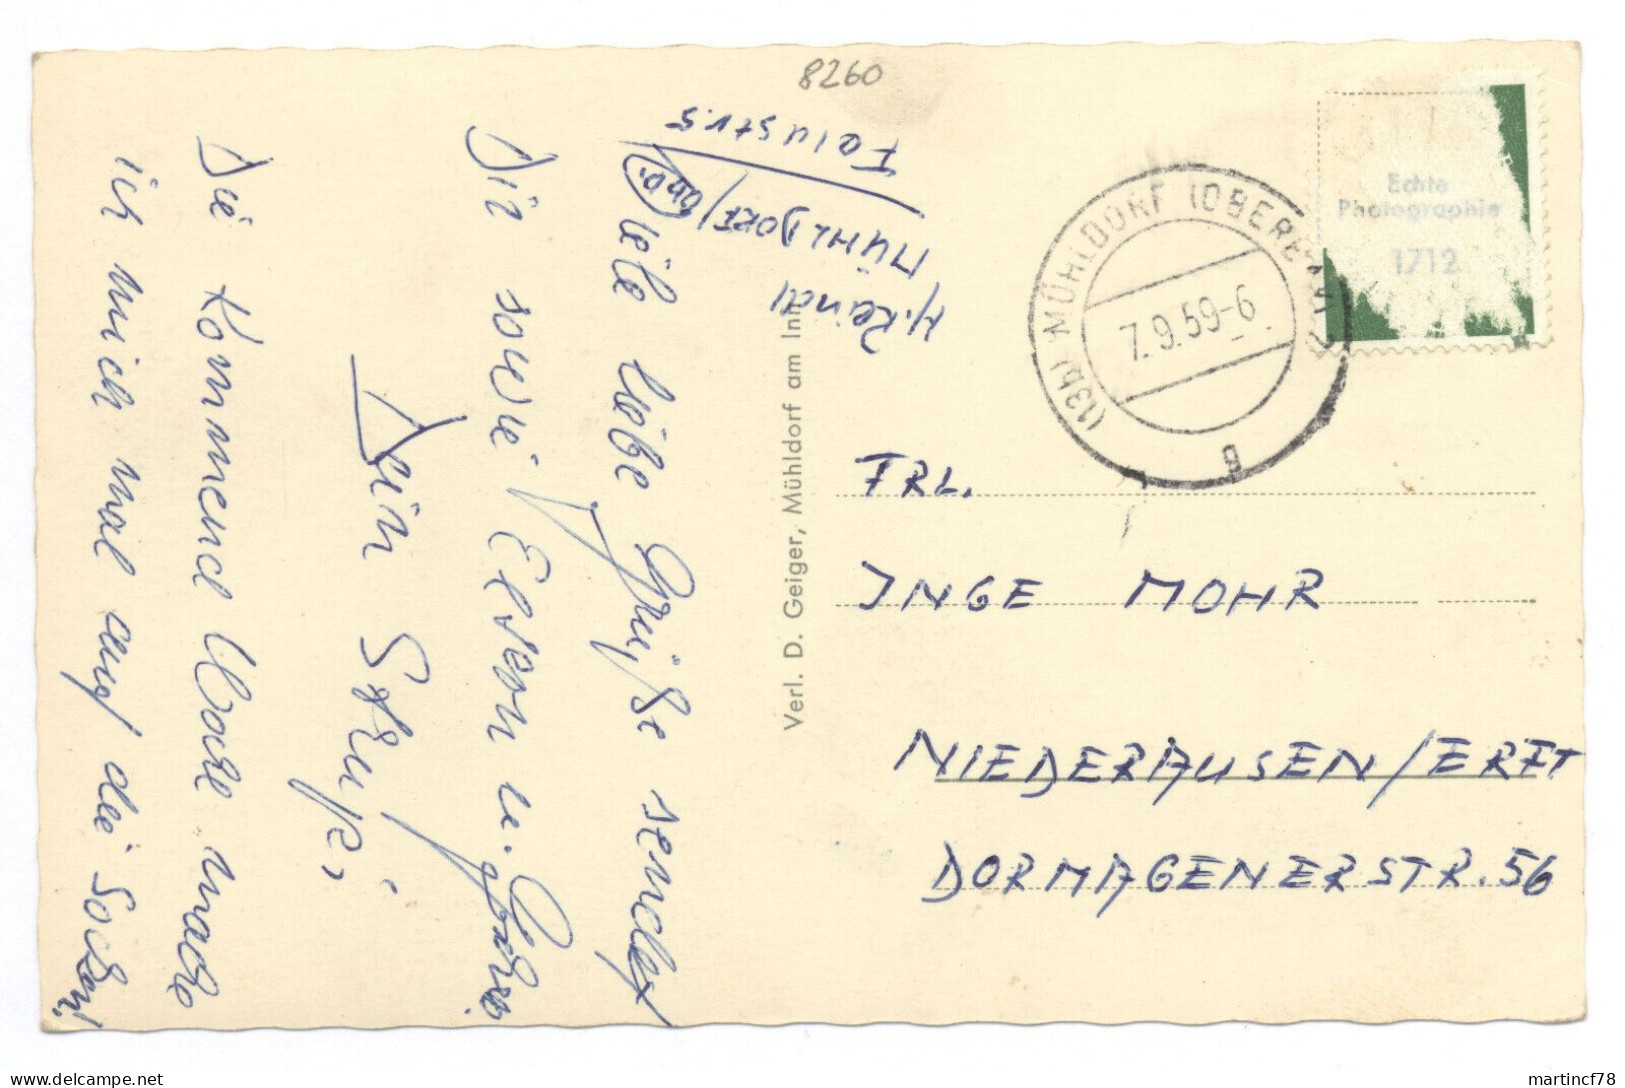 8260
H. Reindl
MÜHLDORF/Obb.
Viele liebe Grüße sendet
Dir sowie Eltern u.
Dein
Die kommend Woche mache
ich mich mal auf die Socken!
Verl. D. Geiger, Mühldorf am Inn
(13b) MÜHLDORF (OBERBAY)
7.9.59-6
a
Echte
Photographie
1712
FRL.
INGE MOHR
NIEDERAUSEN/ERFT
DORMAGENERSTR. 56
delcampe.net
martincf78